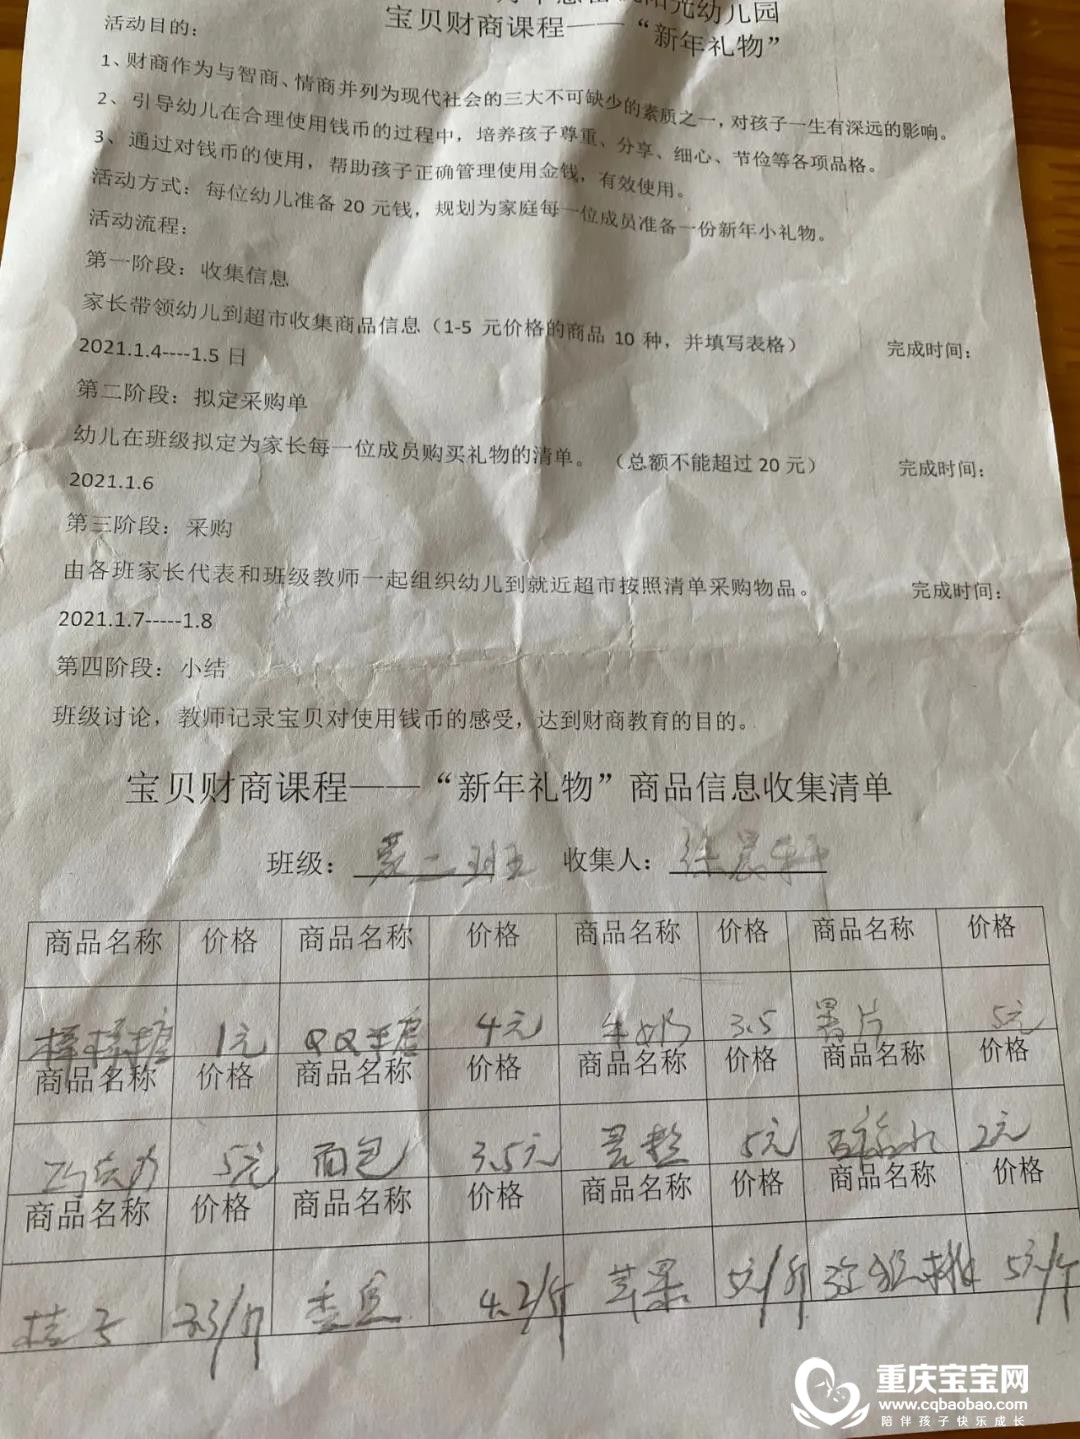 阳光幼儿园
宝贝财商课程——“新年礼物”
活动目的：
1、财商作为与智商、情商并列为现代社会的三大不可缺少的素质之一，对孩子一生有深远的影响。
2、引导幼儿在合理使用钱币的过程中，培养孩子尊重、分享、细心、节俭等各项品格。
3、通过对钱币的使用，帮助孩子正确管理使用金钱，有效使用。
活动方式：每位幼儿准备 20 元钱，规划为家庭每一位成员准备一份新年小礼物。
活动流程：
第一阶段：收集信息
家长带领幼儿到超市收集商品信息（1-5 元价格的商品 10 种，并填写表格） 完成时间：
2021.1.4----1.5 日
第二阶段：拟定采购单
幼儿在班级拟定为家长每一位成员购买礼物的清单。（总额不能超过 20 元） 完成时间：
2021.1.6
第三阶段：采购
由各班家长代表和班级教师一起组织幼儿到就近超市按照清单采购物品。 完成时间：
2021.1.7-----1.8
第四阶段：小结
班级讨论，教师记录宝贝对使用钱币的感受，达到财商教育的目的。
宝贝财商课程——“新年礼物”商品信息收集清单
班级： 二班 收集人： 徐晨轩
商品名称 价格 商品名称 价格 商品名称 价格 商品名称 价格
棒棒糖 1元 QQ糖 4元 牛奶 3.5 薯片 5元
商品名称 价格 商品名称 价格 商品名称 价格 商品名称 价格
巧克力 5元 面包 3.5元 5元 2元
商品名称 价格 商品名称 价格 商品名称 价格 商品名称 价格
桔子 /斤 香蕉 4.2/斤 苹果 5元/斤 猕猴桃 5元/斤
重庆宝宝网
www.cqbaobao.com
陪伴孩子快乐成长